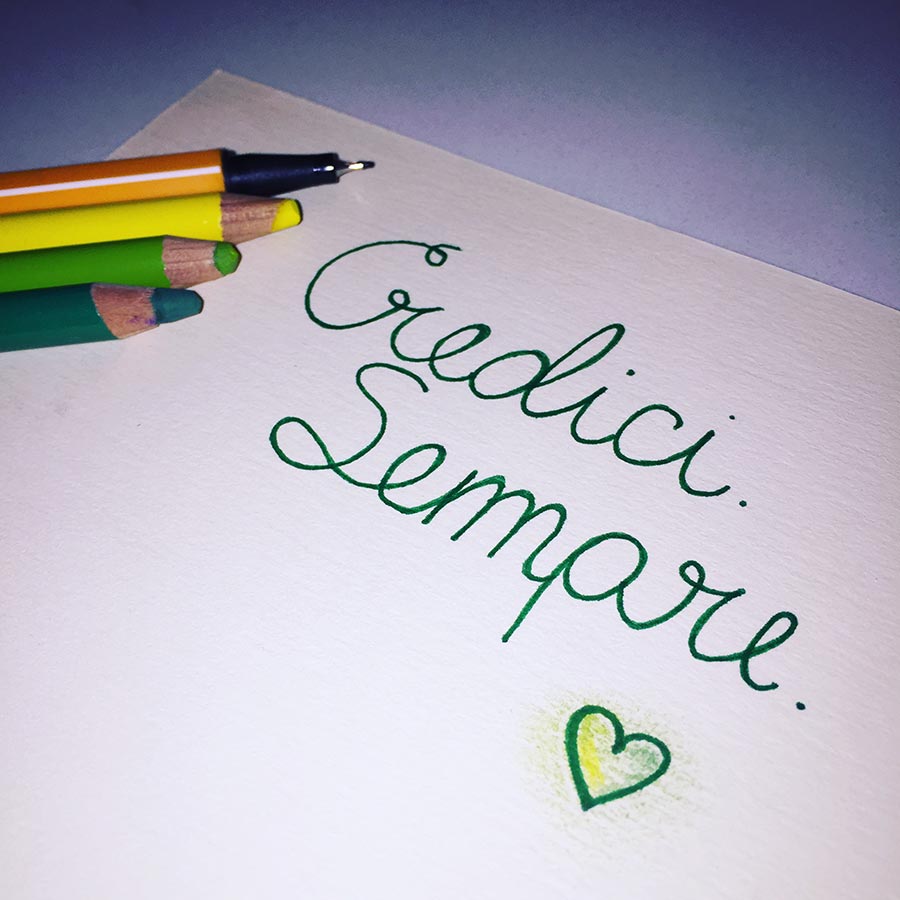 Credici.
Sempre.